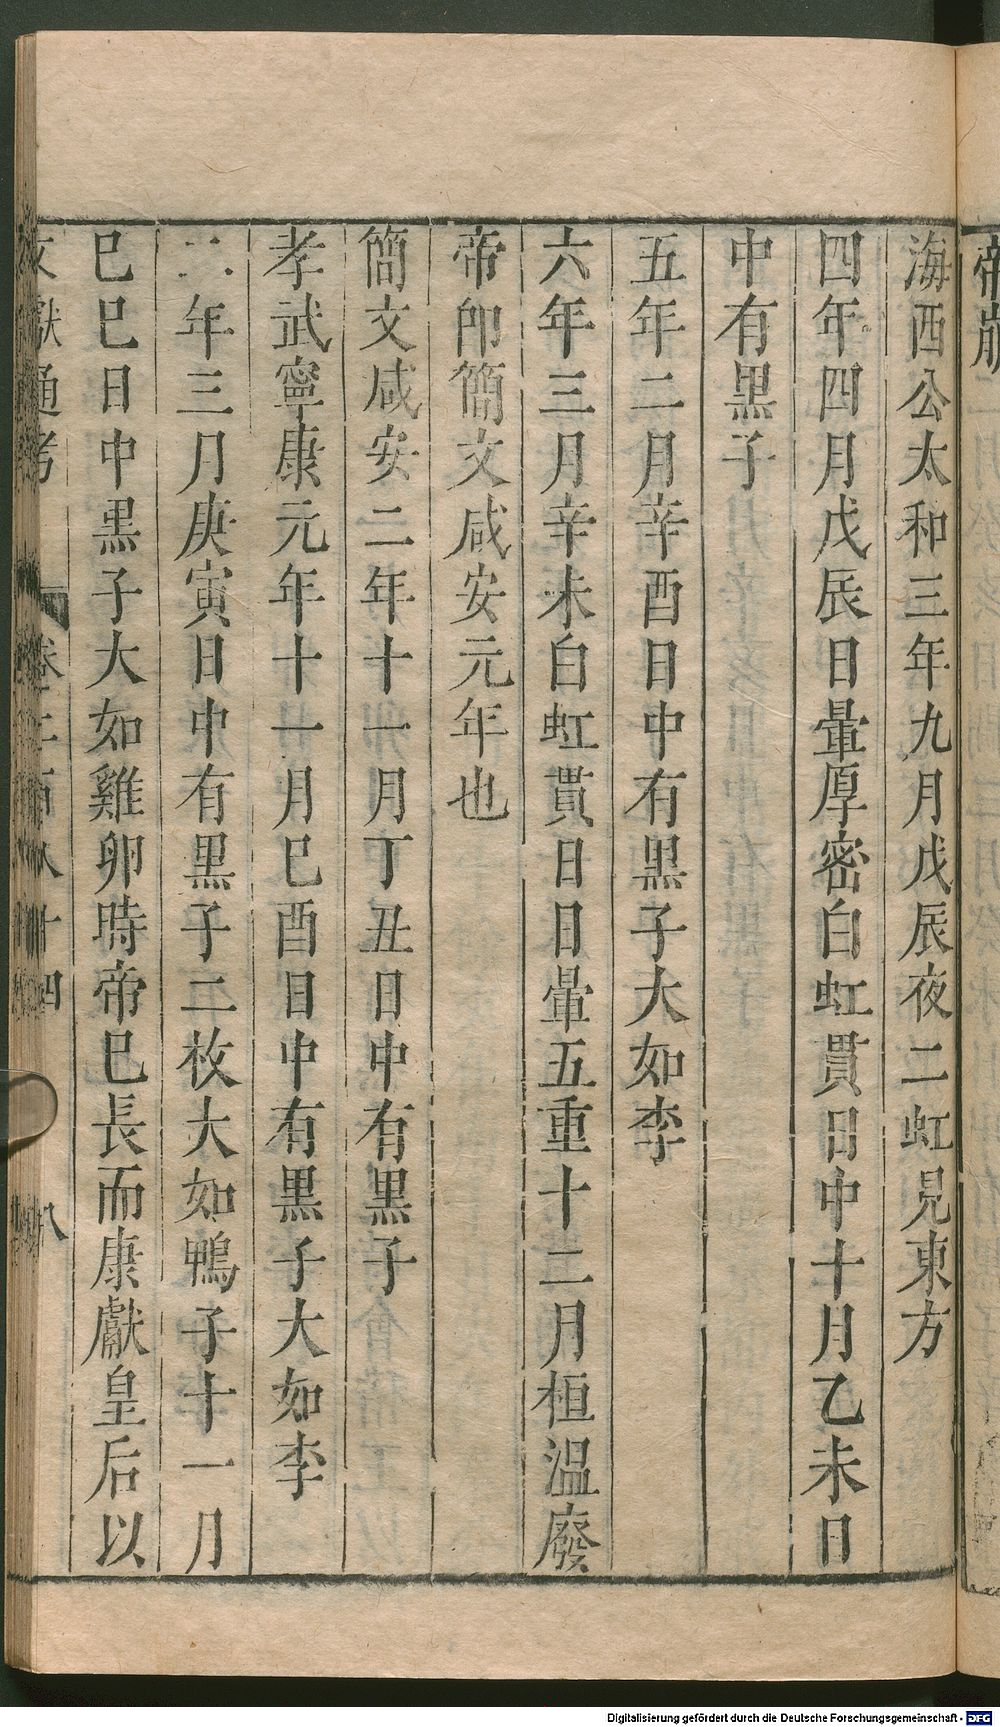 帝崩
海西公太和三年九月戊辰夜二虹見東方
四年四月戊辰日暈厚密白虹貫日中十月乙未日
中有黒子
五年二月辛酉日中有黒子大如李
六年三月辛未白虹貫日日暈五重十二月桓溫廢
帝卽簡文咸安元年也
簡文咸安二年十一月丁丑日中有黒子
孝武寧康元年十一月巳酉日中有黒子大如李
二年三月庚寅日中有黒子二枚大如鴨子十一月
巳巳日中黒子大如雞卵時帝巳長而康獻皇后以
文獻通考 卷二百八十四 八
Digitalisierung gefördert durch die Deutsche Forschungsgemeinschaft - DFG